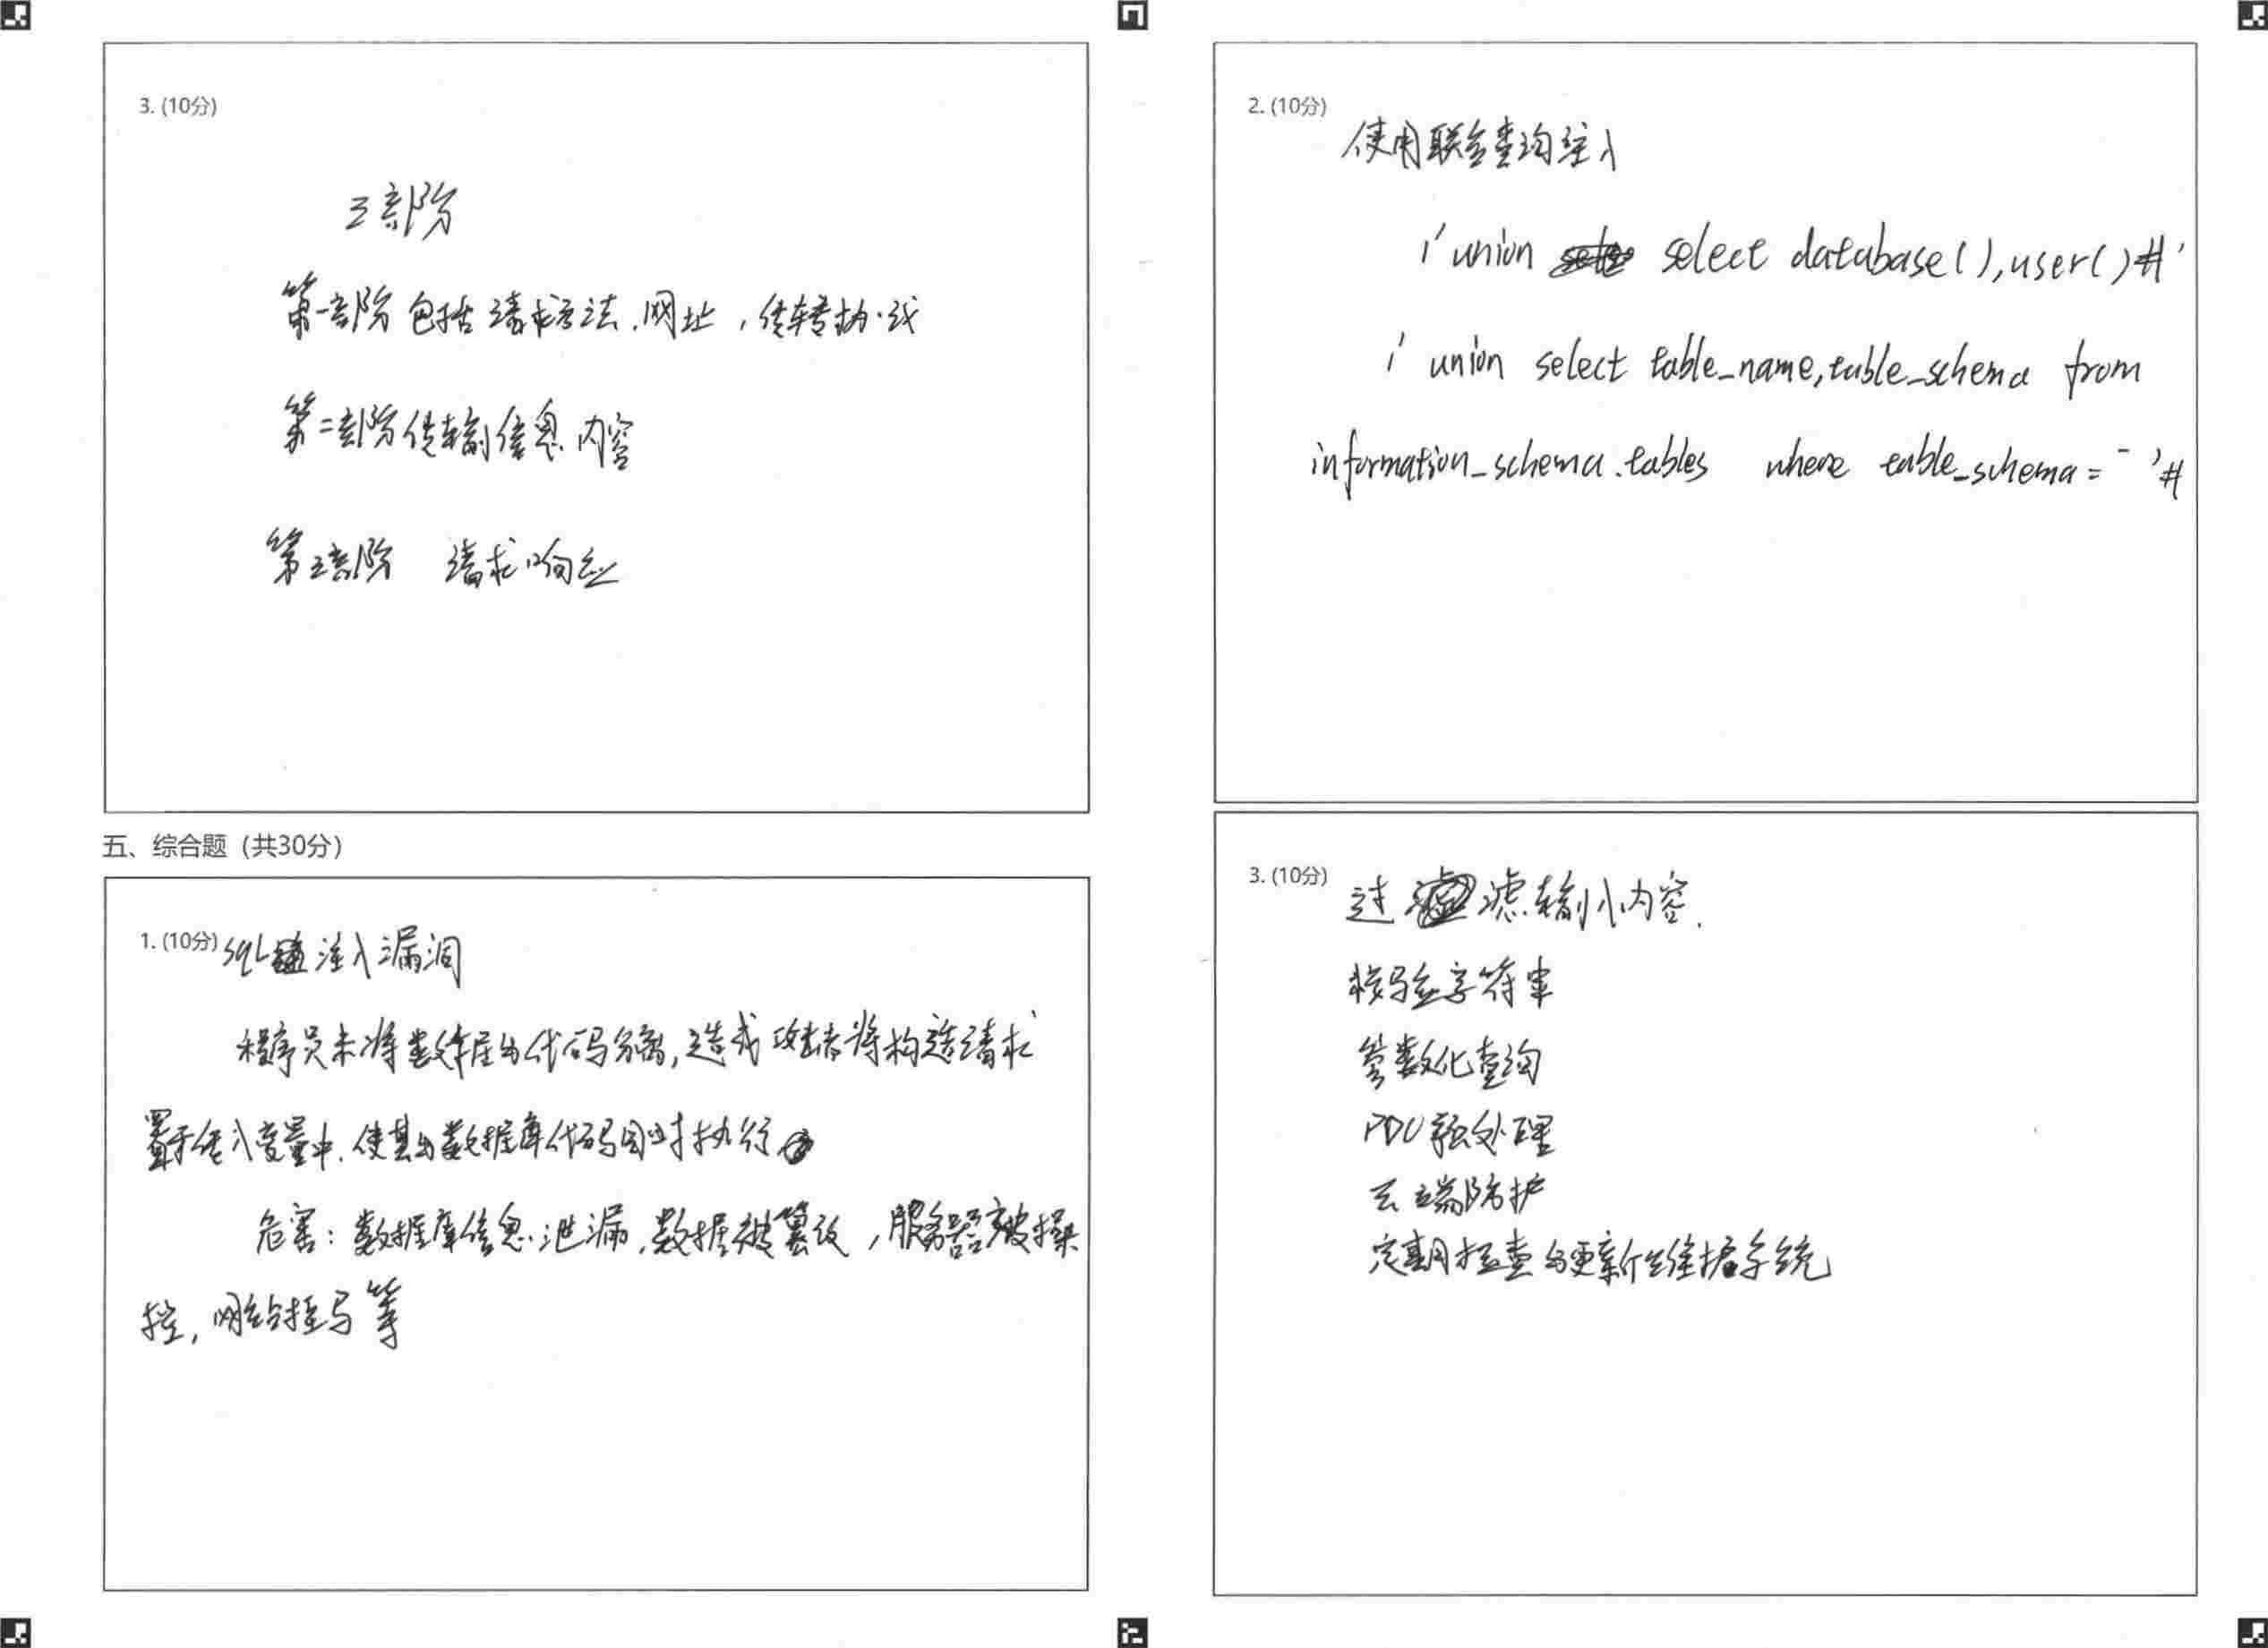 3. (10分)
三部阶
第一部阶包括请求方法.网址,传转协议
第二部阶传输信息内容
第三部阶 请求响应
五、综合题（共30分）
1. (10分) SQL注入漏洞
程序员未将数据与代码分离,造成攻击者将构造请求
置于传入变量中.使其与数据库代码同时执行
危害:数据库信息泄漏,数据被篡改,服务器被操
控,网络挂马等
2. (10分)
使用联合查询注入
1' union select database(),user()#'
1' union select table_name,table_schema from
information_schema.tables where table_schema= '#
3. (10分) 过滤输入内容.
校验字符串
参数化查询
PDO预处理
云端防护
定期检查与更新维护系统